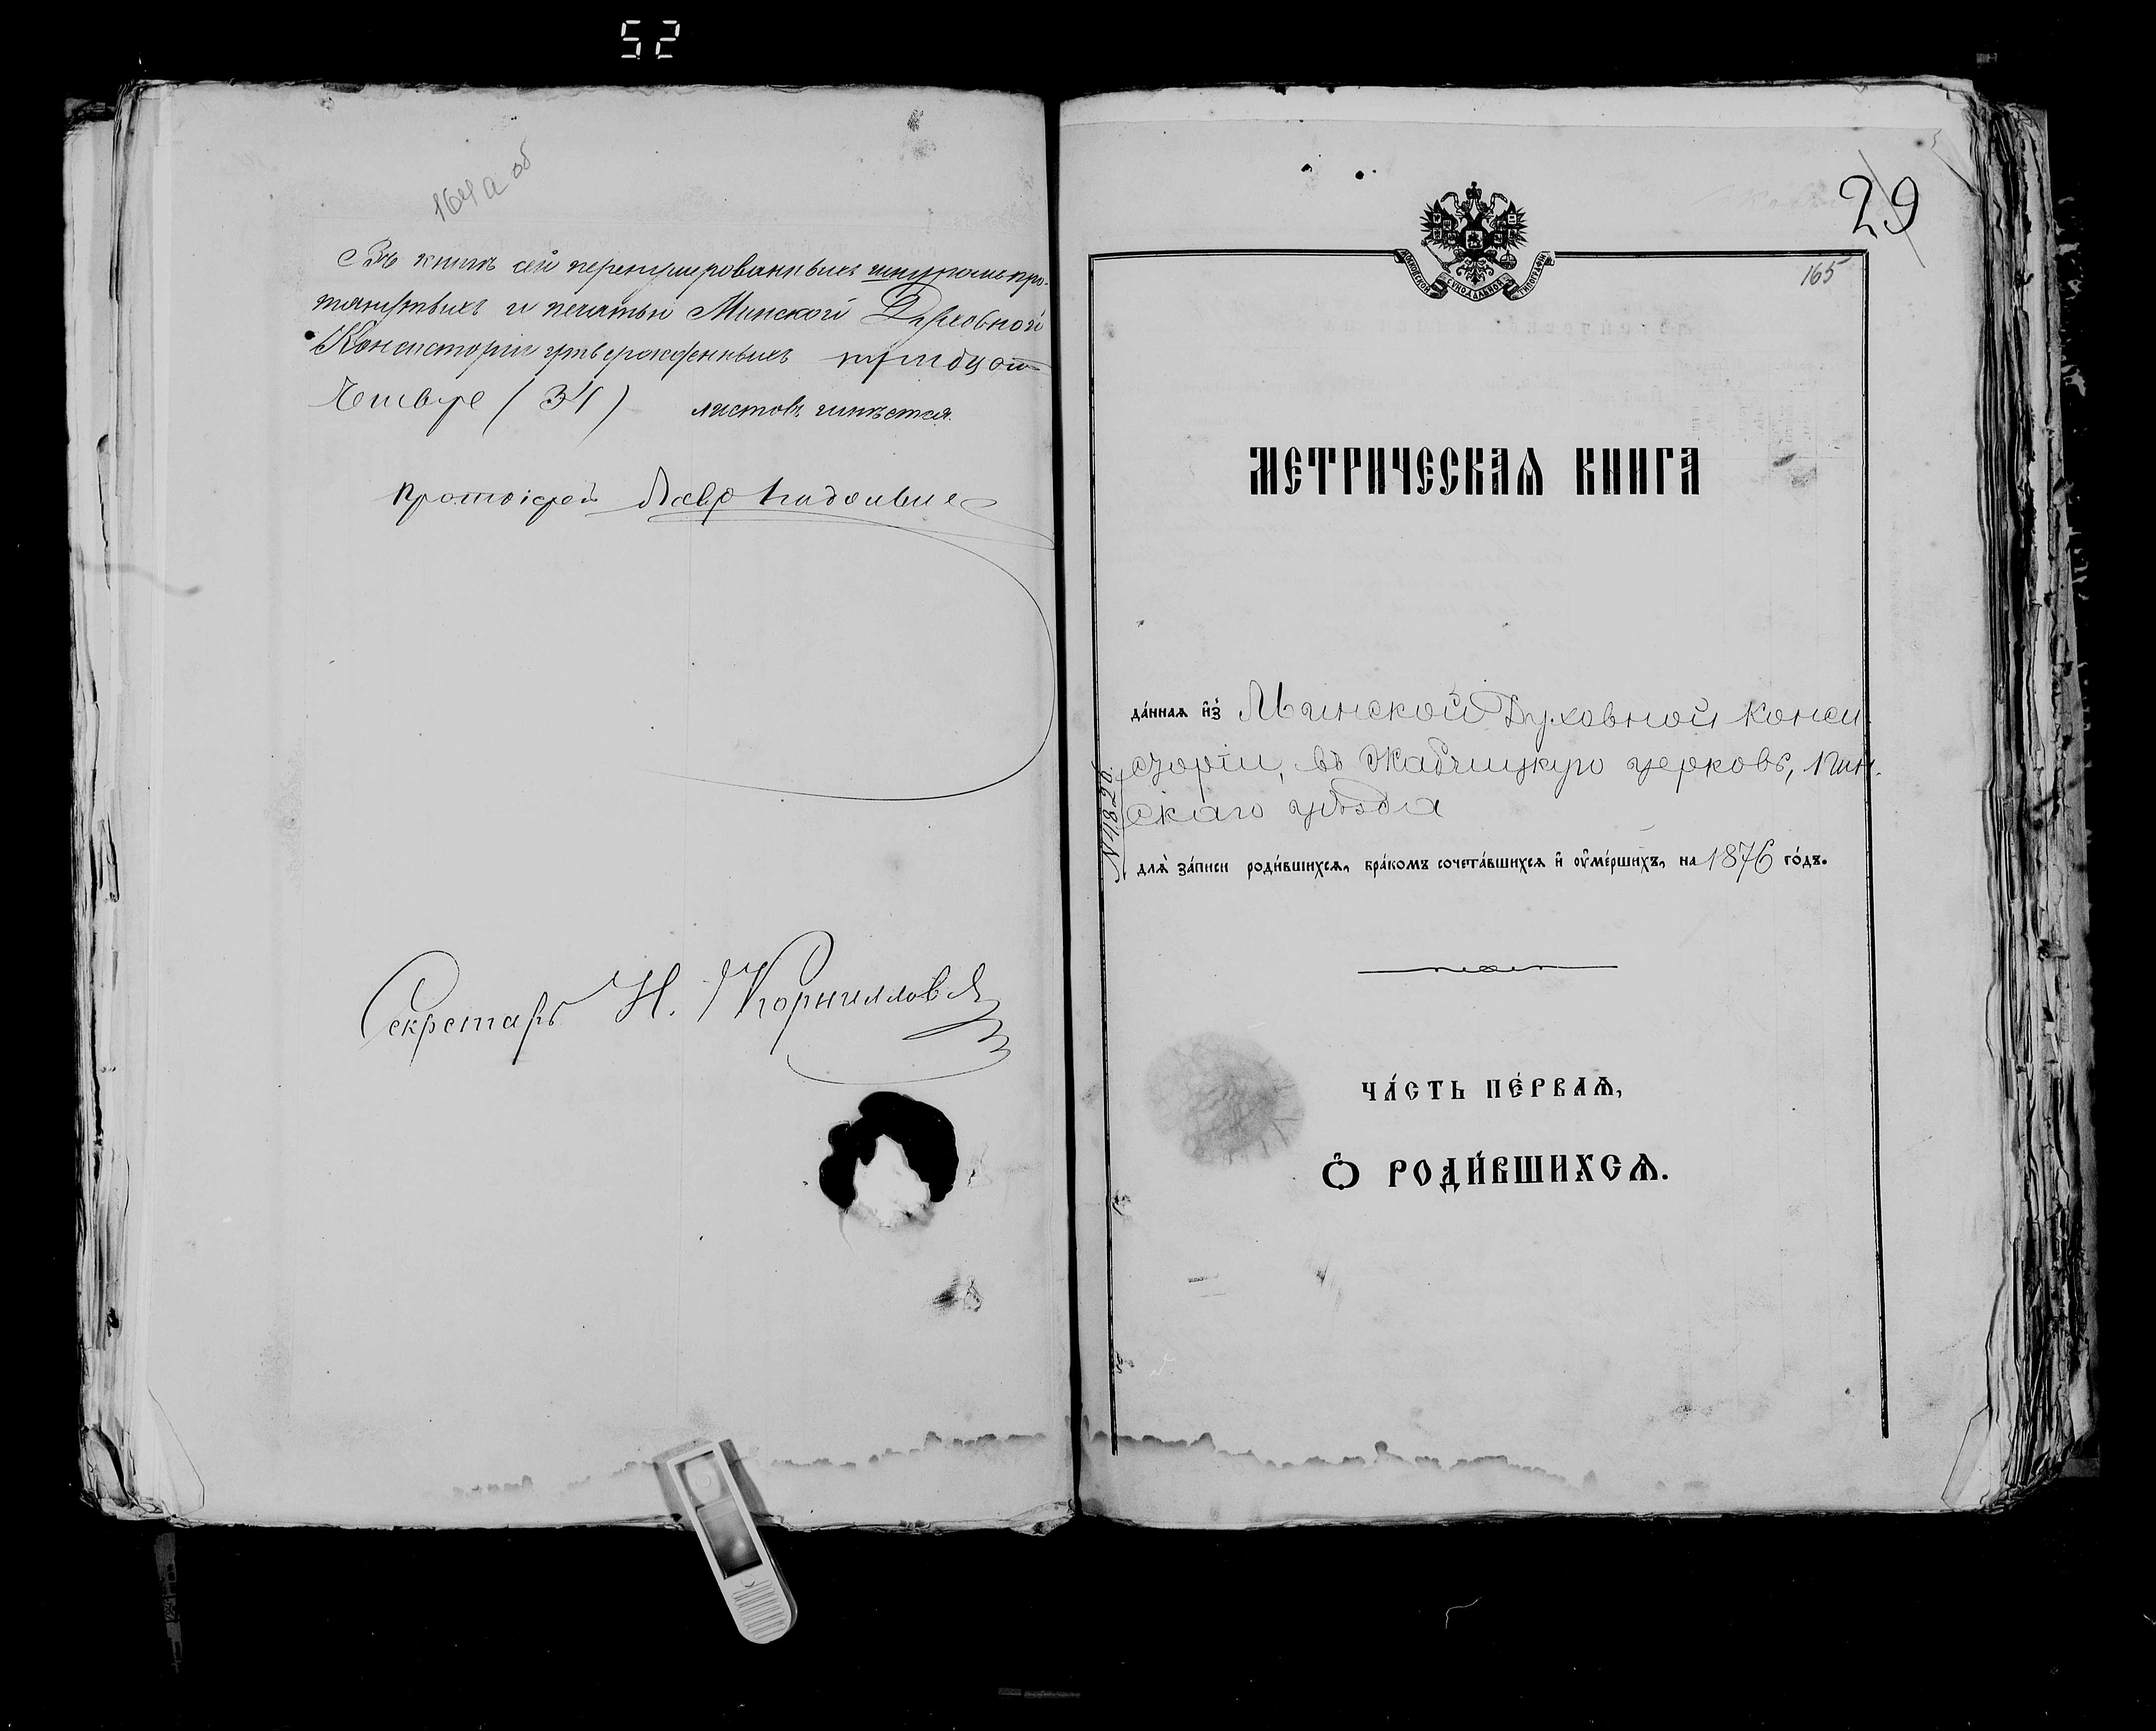 52
164а об
Въ книгѣ сей перенумерованныхъ шнуромъ про-
тянутыхъ и печатью Минской Духовной
Консисторіи утвержденныхъ тридцать
четыре (34) листовъ имѣется.
Протоіерей
Секретарь Н. Корниловъ
29
165
МОСКОВСКОЙ СѴНОДАЛЬНОЙ ТИПОГРАФІИ
МЕТРИЧЕСКАѦ КНИГА
да́ннаѧ и҆з̾ Минской Духовной Конси-
сторіи, въ Жабчицкую церковь, Пин-
скаго уѣзда
№ 4820.
длѧ̀ за́писи роди́вшихсѧ, бра́комъ сочета́вшихсѧ и҆ оу҆ме́ршихъ, на 1876 го́дъ.
ЧА́СТЬ ПЕ́РВАѦ,
Ѽ РОДИ́ВШИХСѦ.